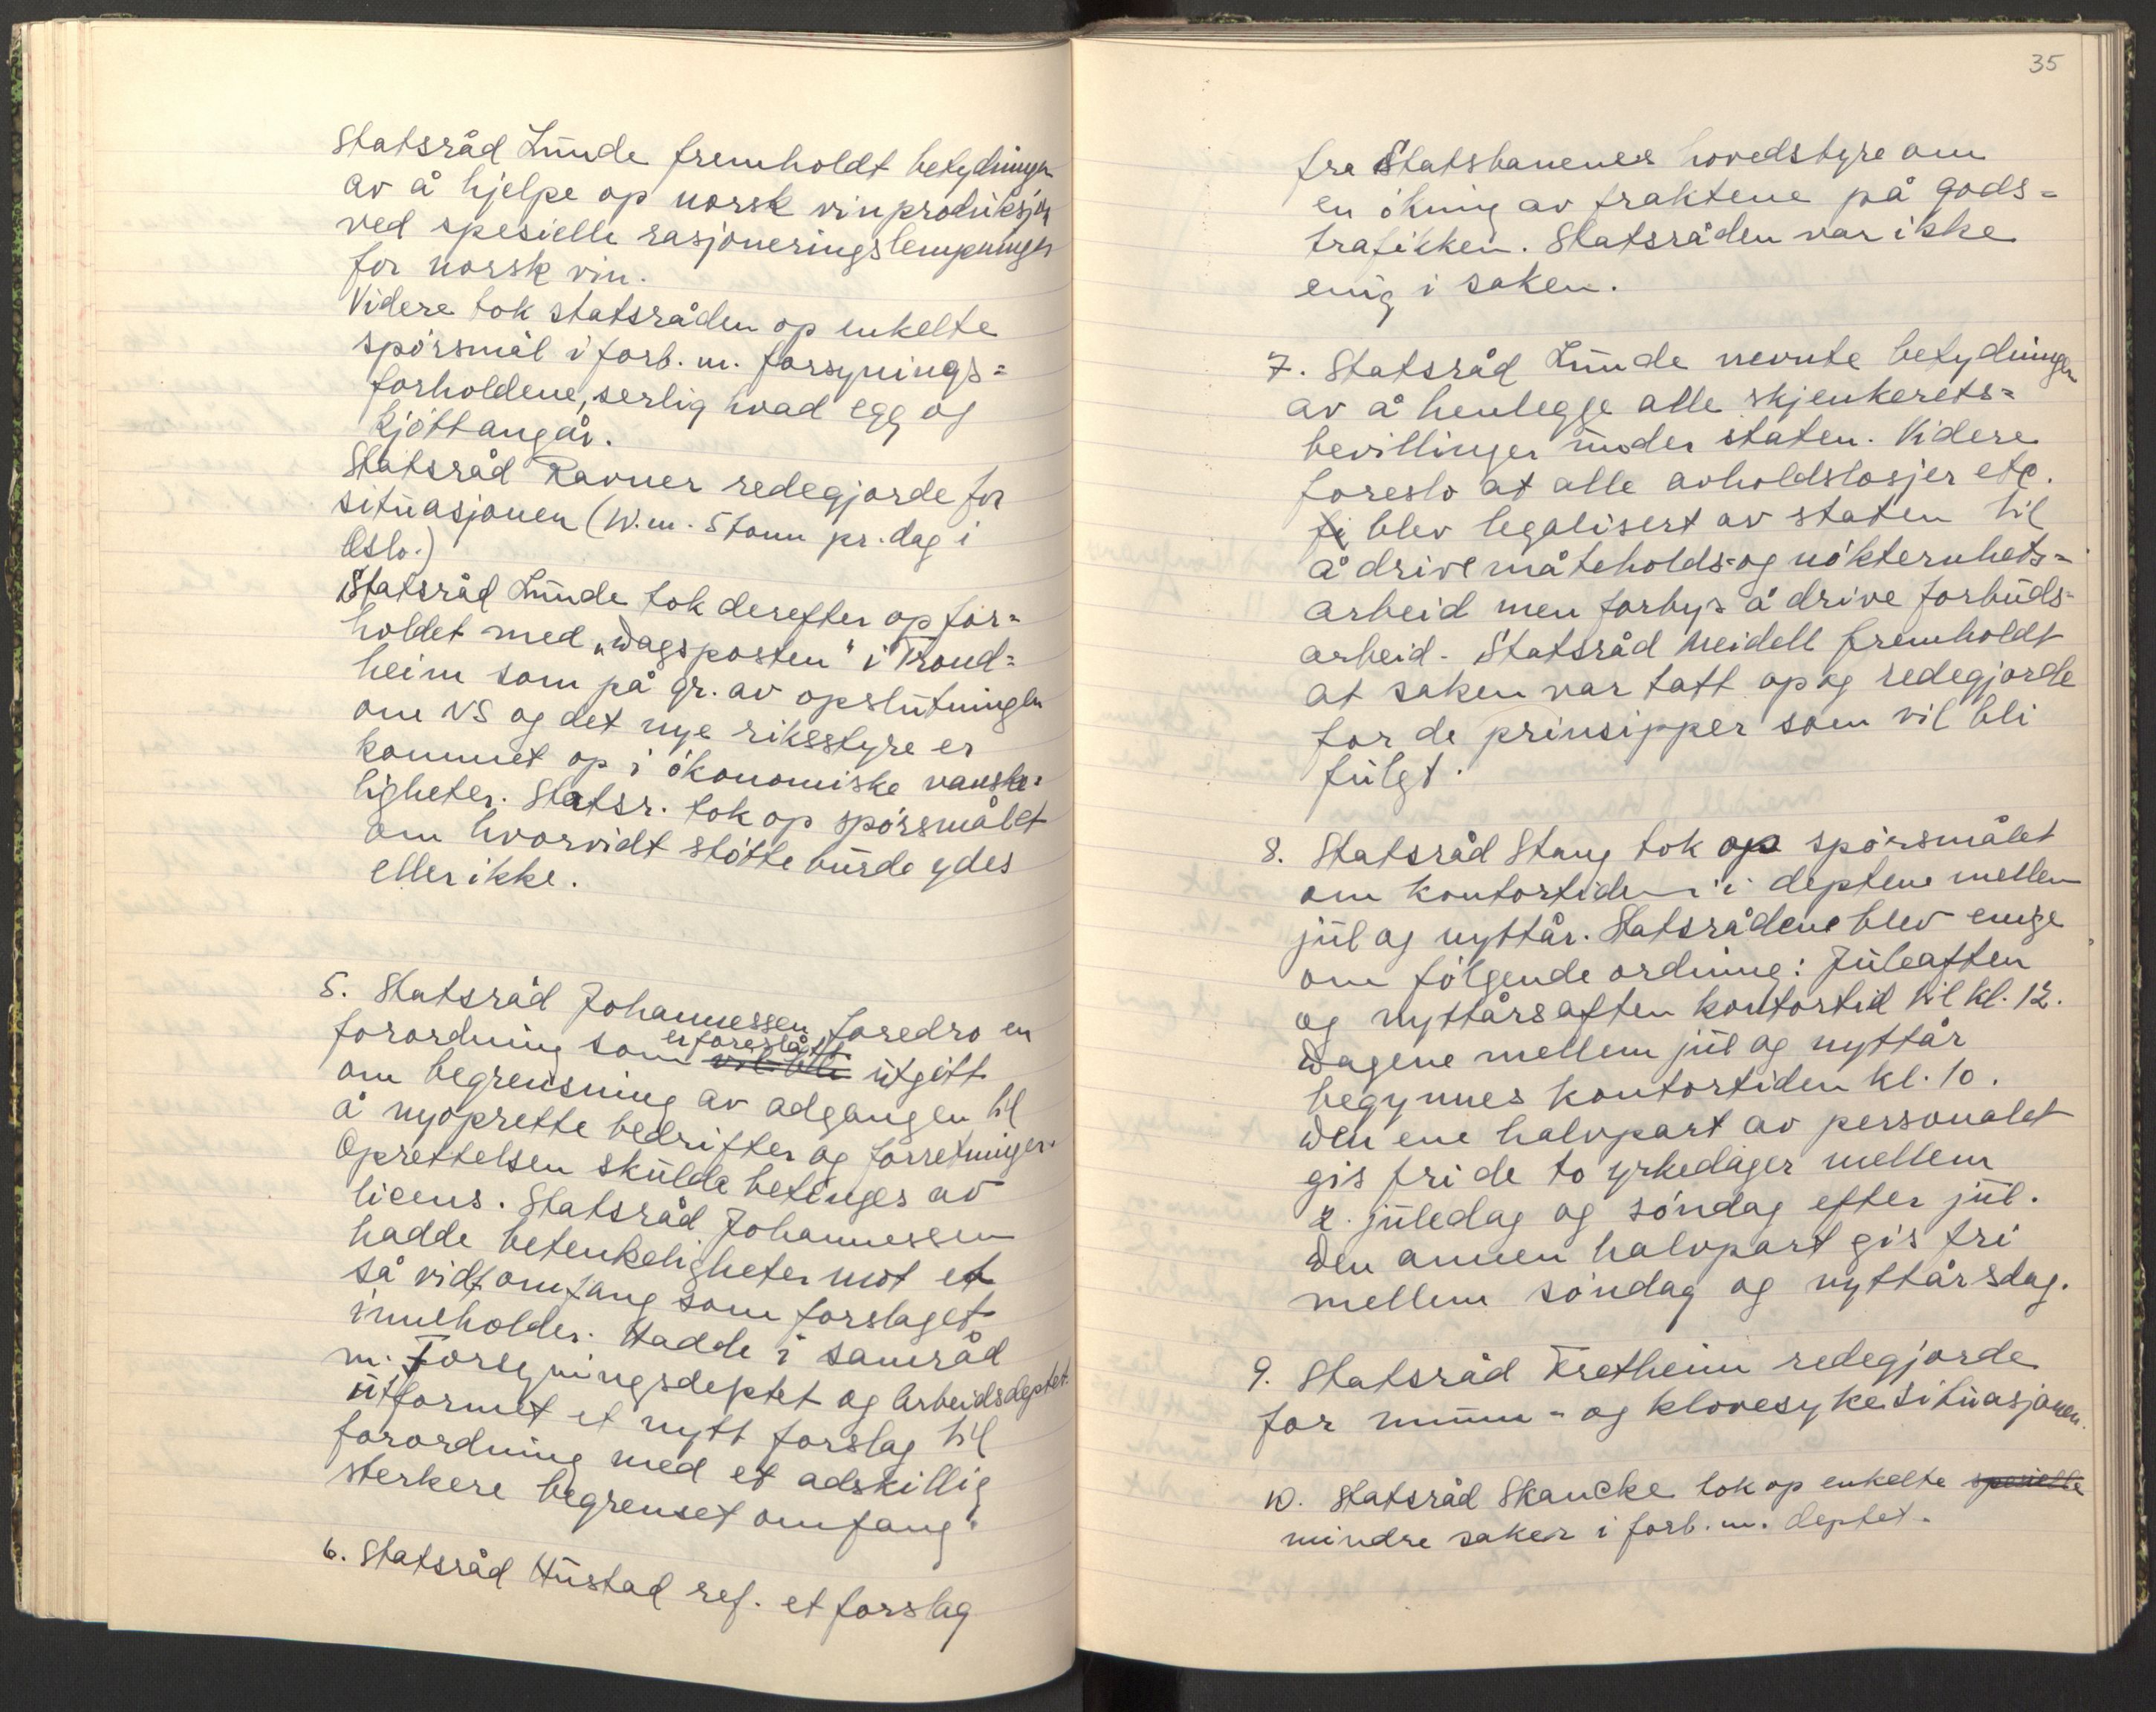 Statsråd Lunde fremholdt betydningen
av å hjelpe op norsk vinproduksjon
ved spesielle rasjoneringslempninger
for norsk vin.
Videre tok statsråden op enkelte
spørsmål i forb. m. forsynings=
forholdene, serlig hvad egg og
kjøtt angår.
Statsråd Ravner redegjorde for
situasjonen (W.m. 5 tonn pr. dag i
Oslo.)
Statsråd Lunde tok derefter op for=
holdet med „Dagsposten“ i Trond=
heim som på gr. av opslutningen
om NS og det nye riksstyre er
kommet op i økonomiske vanske=
ligheter. Statsr. tok op spørsmålet
om hvorvidt støtte burde ydes
eller ikke.
5. Statsråd Johannessen foredro en
er foreslått
forordning som vil bli utgitt
om begrensning av adgangen til
å nyoprette bedrifter og forretninger.
Oprettelsen skulde betinges av
licens. Statsråd Johannessen
hadde betenkeligheter mot et
så vidt omfang som forslaget
inneholder. Hadde i samråd
m. Forsyningsdeptet og Arbeidsdeptet.
utformet et nytt forslag til
forordning med et adskillig
sterkere begrenset omfang.
6. Statsråd Hustad ref. et forslag
35
fra Statsbanenes hovedstyre om
en økning av fraktene på gods=
trafikken. Statsråden var ikke
enig i saken.
7. Statsråd Lunde nevnte betydningen
av å henlegge alle skjenkerets=
bevillinger under staten. Videre
foreslo at alle avholdslosjer etc.
fi blev legalisert av staten til
å drive måteholds- og nøkternhets=
arbeid men forbys å drive forbuds=
arbeid. Statsråd Meidell fremholdt
at saken var tatt op og redegjorde
for de prinsipper som vil bli
fulgt.
8. Statsråd Stang tok op spørsmålet
om kontortiden i deptene mellem
jul og nyttår. Statsrådene blev enige
om følgende ordning: Juleaften
og nyttårsaften kontortid til kl. 12.
Dagene mellem jul og nyttår
begynnes kontortiden kl. 10.
Den ene halvpart av personalet
gis fri de to yrkedager mellem
2. juledag og søndag efter jul.
Den annen halvpart gis fri
mellem søndag og nyttårsdag.
9. Statsråd Fretheim redegjorde
for munn- og klovesykesituasjonen.
10. Statsråd Skancke tok op enkelte spesielle
mindre saker i forb. m. deptet.